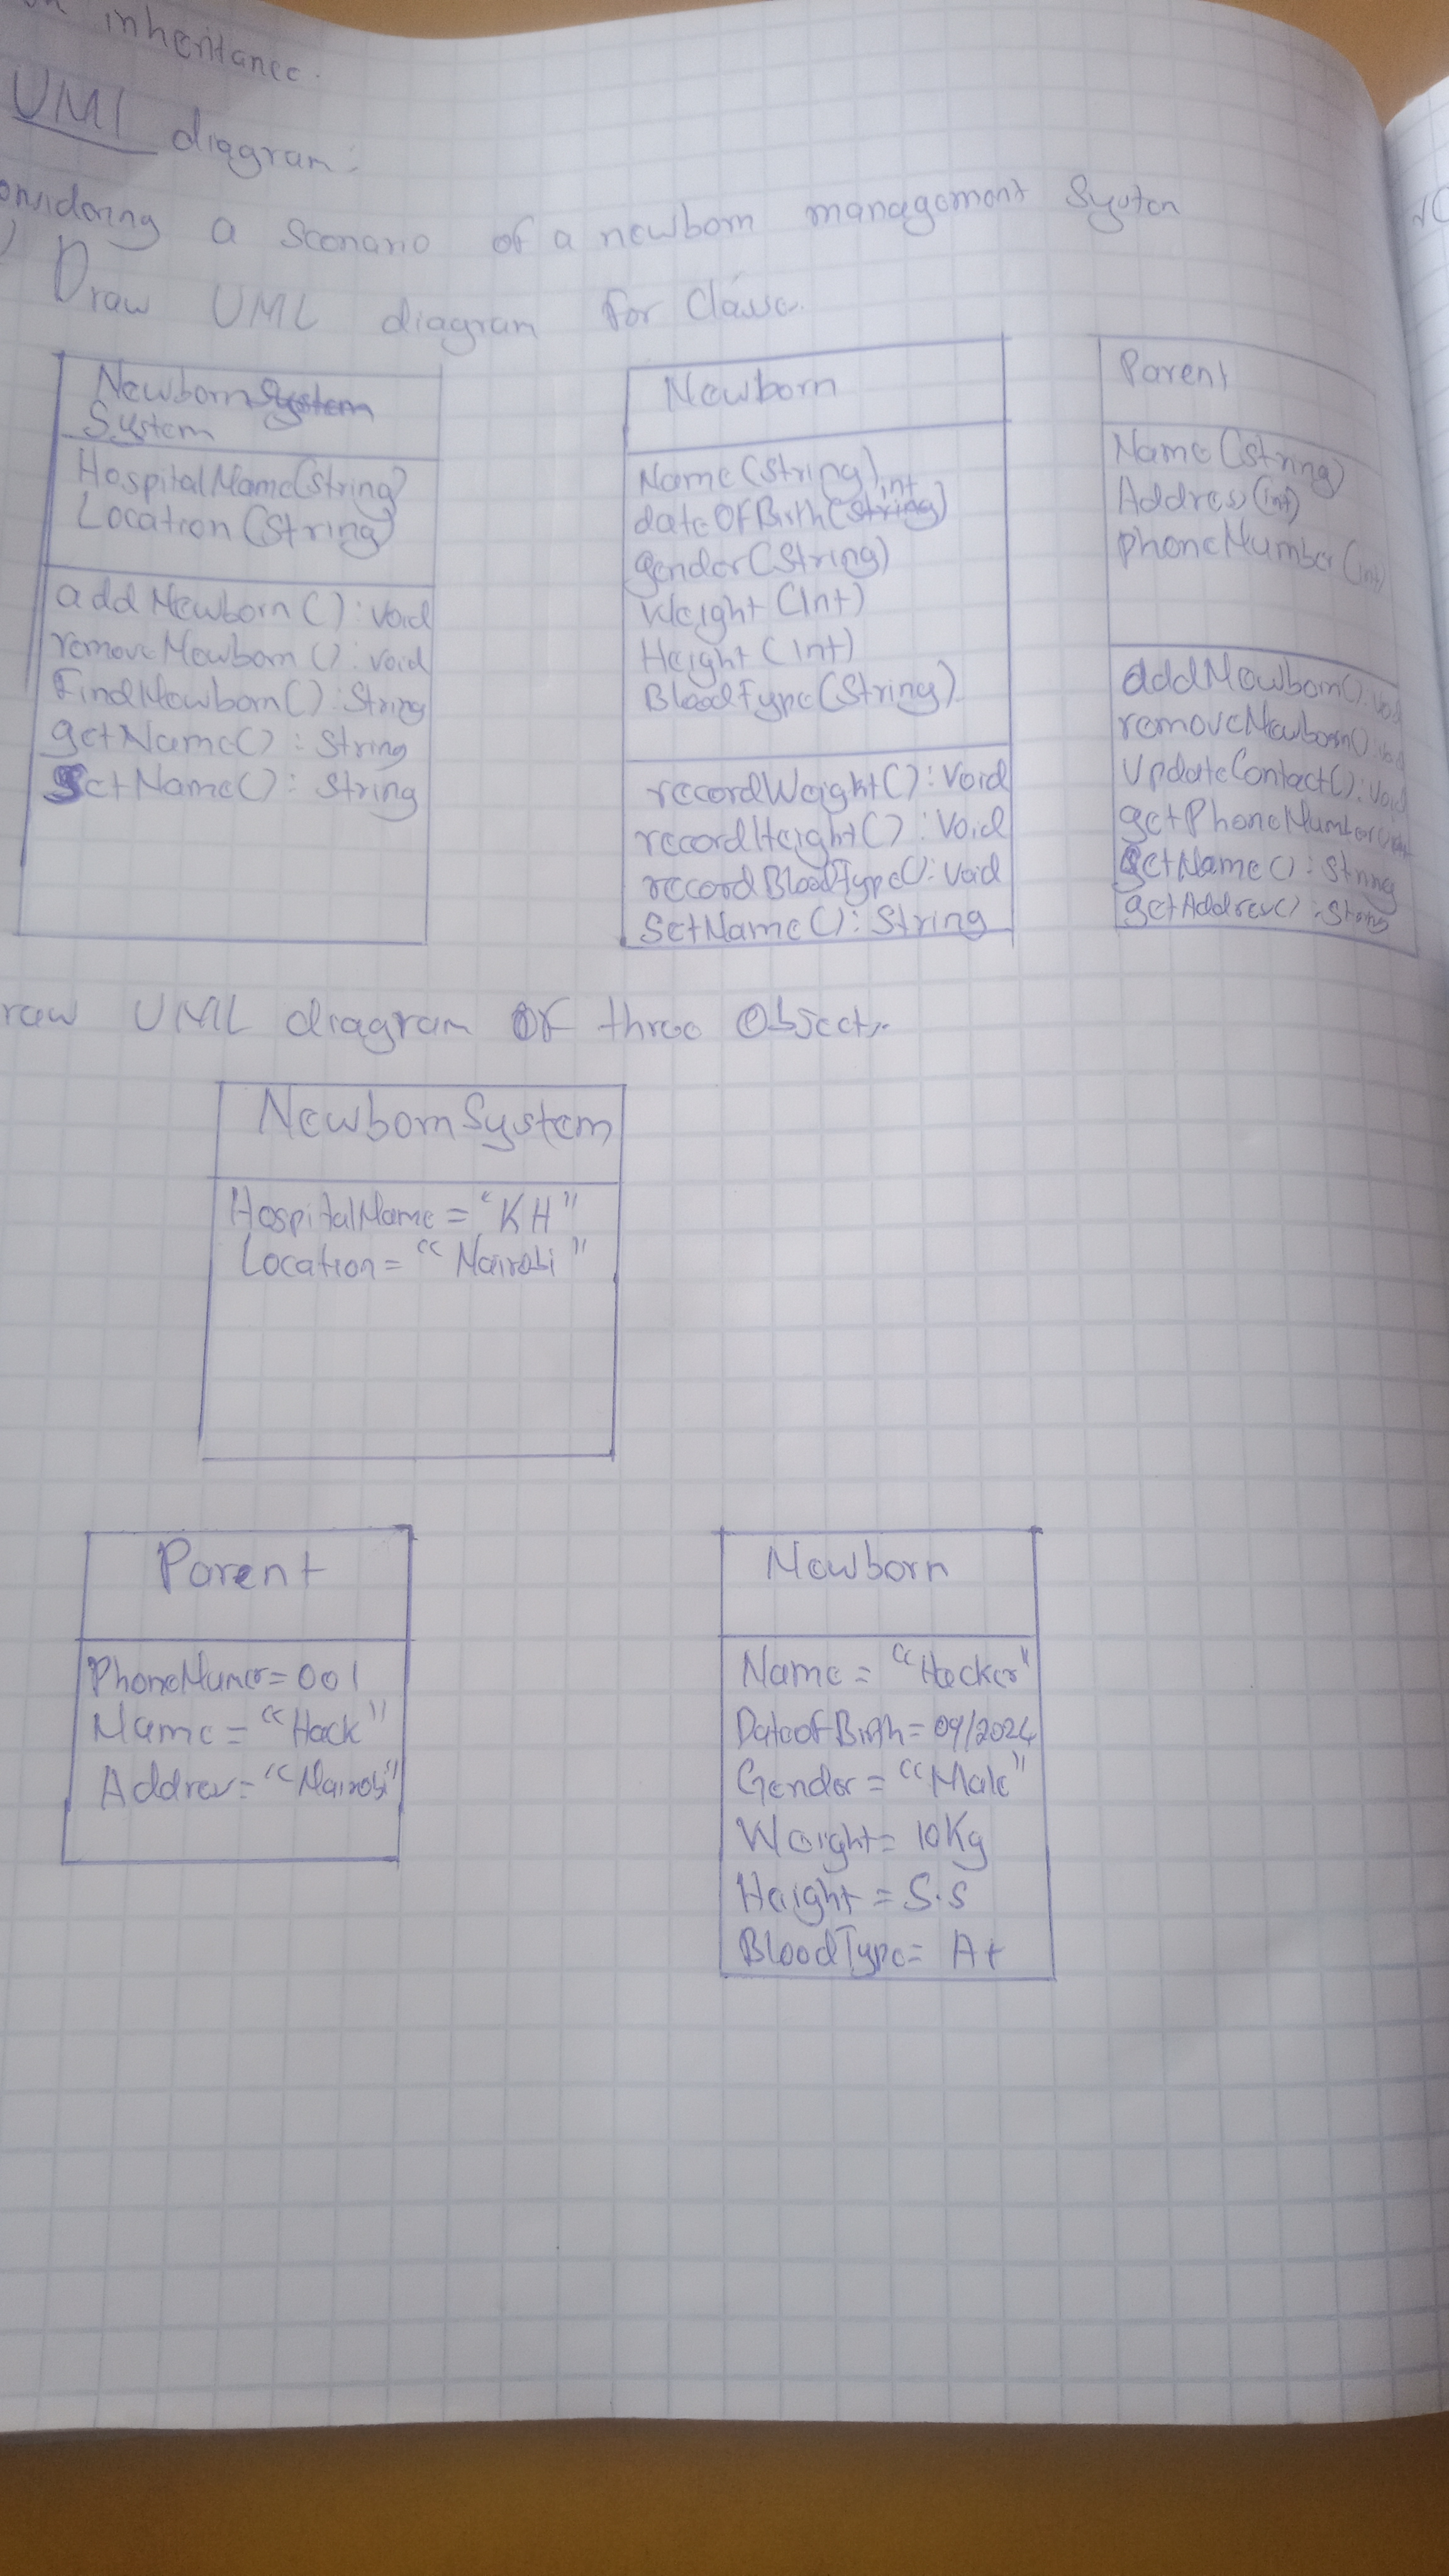 inheritance.
UML diagram:
onsidering a Scenario of a newborn management System
Draw UML diagram for Classes.
Newborn System
System
HospitalName(String)
Location (String)
addNewborn() : Void
removeNewborn() : Void
FindNewborn() : String
getName() : String
SetName() : String
Newborn
Name (String)
int
dateOfBirth (String)
gender (String)
Weight (Int)
Height (Int)
BloodType (String)
recordWeight() : Void
recordHeight() : Void
recordBloodType() : Void
SetName() : String
Parent
Name (String)
Address (int)
phoneNumber (int)
addNewborn() : Void
removeNewborn() : Void
UpdateContact() : Void
getPhoneNumber()
SetName() : String
getAddress() : String
raw UML diagram of three Objects.
NewbornSystem
HospitalName = "KH"
Location = "Nairobi"
Parent
PhoneNumer = 001
Name = "Hack"
Address = "Nairobi"
Newborn
Name = "Hacker"
DateofBirth = 09/2024
Gender = "Male"
Weight = 10Kg
Height = 5.5
BloodType = A+